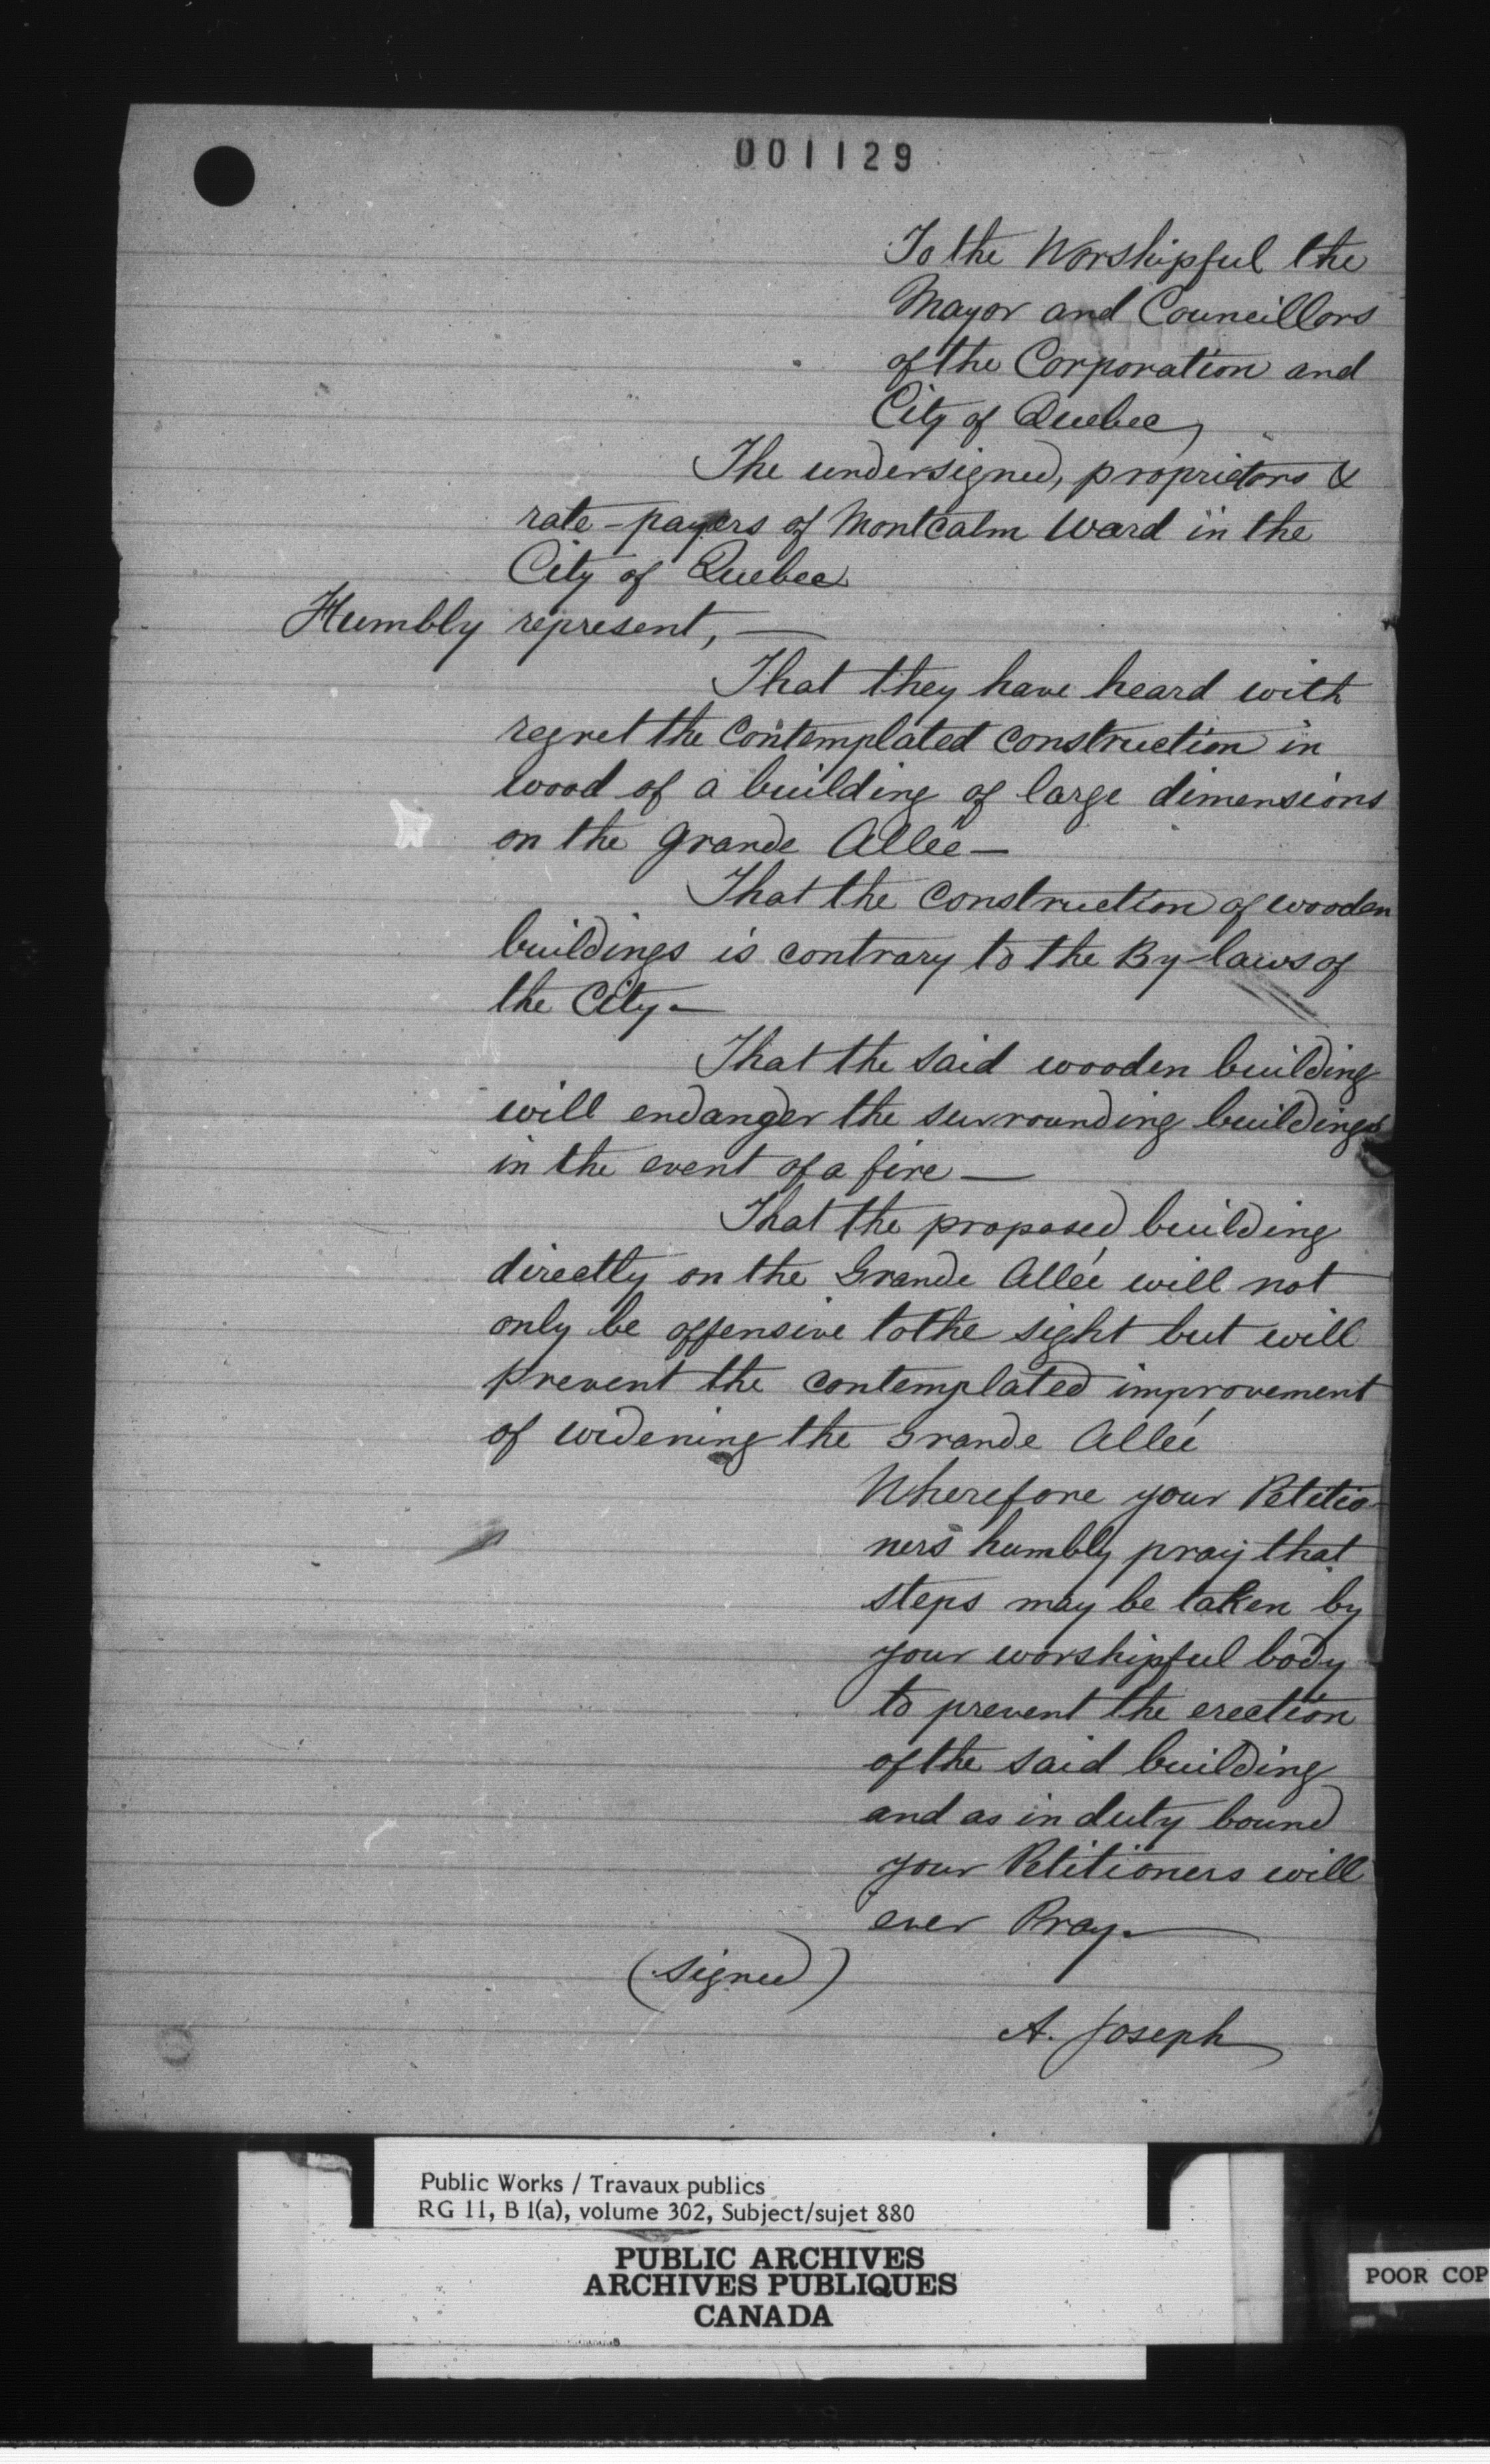 001129
To the Worshipful the
Mayor and Councillors
of the Corporation and
City of Quebec,
The undersigned, proprietors &
rate-payers of Montcalm Ward in the
City of Quebec
Humbly represent, —
That they have heard with
regret the contemplated construction in
wood of a building of large dimensions
on the Grande Allée —
That the construction of wooden
buildings is contrary to the By-laws of
the City —
That the said wooden building
will endanger the surrounding buildings
in the event of a fire —
That the proposed building
directly on the Grande Allée will not
only be offensive to the sight but will
prevent the contemplated improvement
of widening the Grande Allée
Wherefore your Petitio-
ners humbly pray that
steps may be taken by
your worshipful body
to prevent the erection
of the said building
and as in duty bound
your Petitioners will
ever Pray. —
(signed)
A. Joseph
Public Works / Travaux publics
RG 11, B 1(a), volume 302, Subject/sujet 880
PUBLIC ARCHIVES
ARCHIVES PUBLIQUES
CANADA
POOR COP